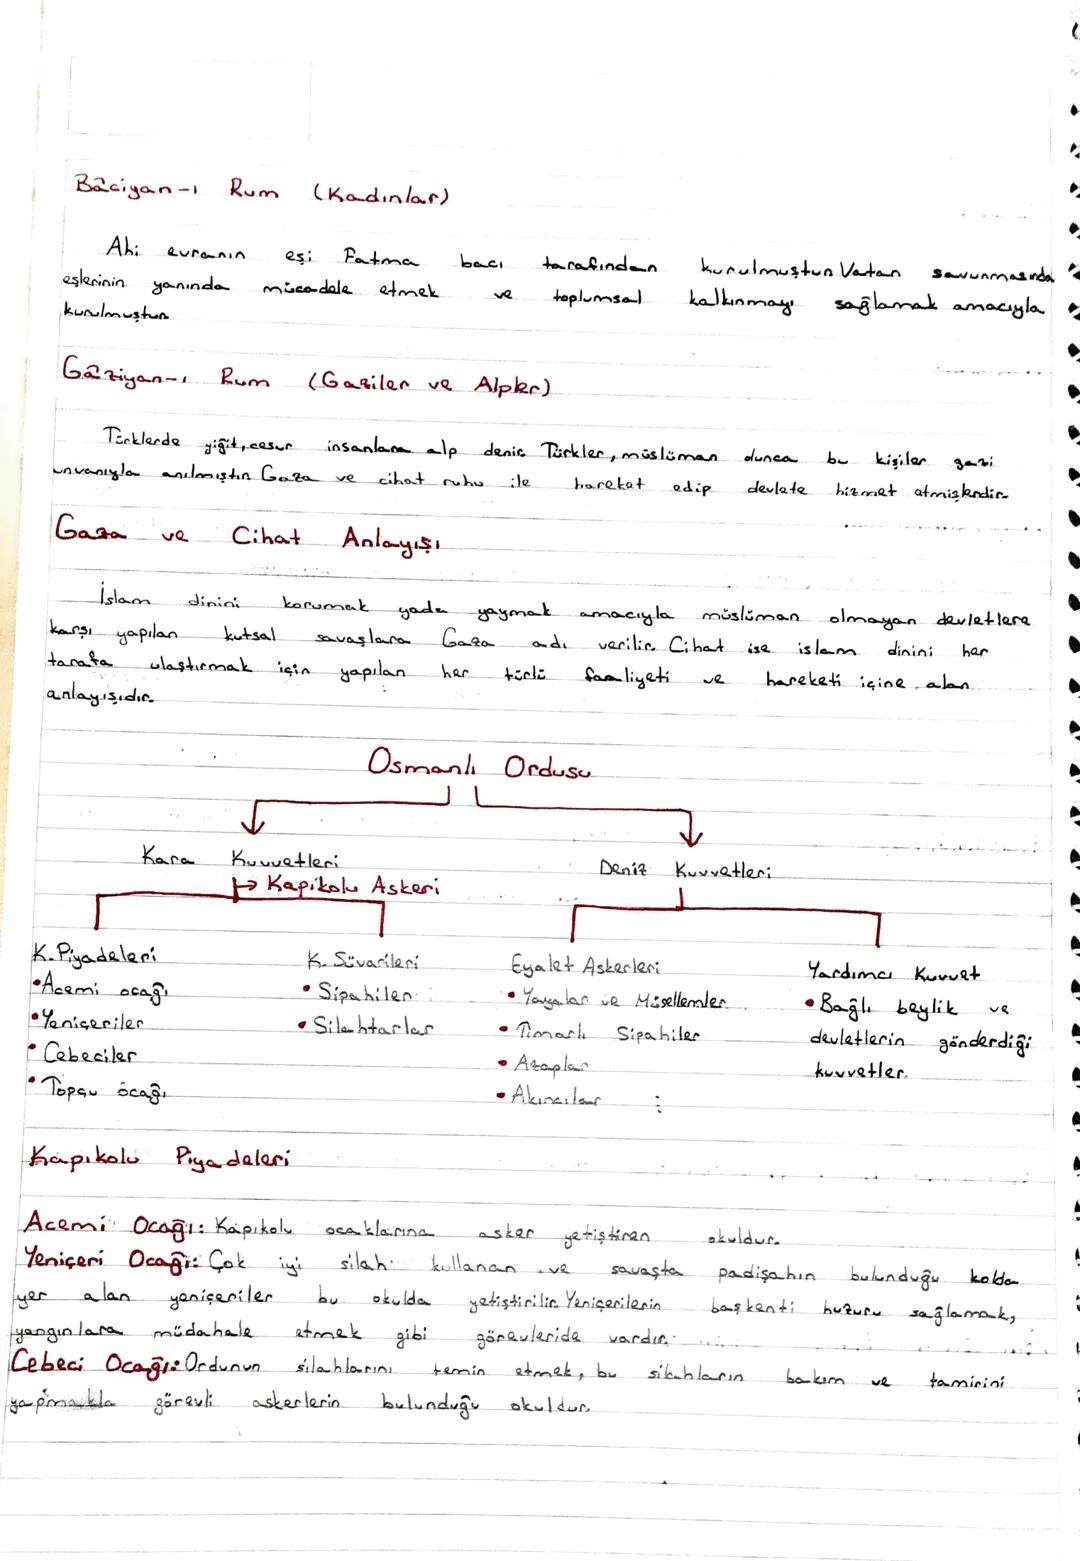 Bâciyan-ı Rum (Kadınlar)
Ahi evranın eşi Fatma bacı tarafından kurulmuştur. Vatan savunmasında
eşlerinin yanında mücadele etmek ve toplumsal kalkınmayı sağlamak amacıyla
kurulmuştur.
Gâziyan-ı Rum (Gaziler ve Alpler)
Türklerde yiğit, cesur insanlara alp denir. Türkler, müslüman olunca bu kişiler gazi
unvanıyla anılmıştır. Gaza ve cihat ruhu ile hareket edip devlete hizmet etmişlerdir.
Gaza ve Cihat Anlayışı
İslam dinini korumak yada yaymak amacıyla müslüman olmayan devletlere
karşı yapılan kutsal savaşlara Gaza adı verilir. Cihat ise islam dinini her
tarafa ulaştırmak için yapılan her türlü faaliyeti ve hareketi içine alan
anlayışıdır.
Osmanlı Ordusu
Kara Kuvvetleri
Deniz Kuvvetleri
Kapıkolu Askeri
K. Piyadeleri
• Acemi ocağı
• Yeniçeriler
• Cebeciler
• Topçu ocağı
K. Süvarileri
• Sipahiler
• Silahtarlar
Eyalet Askerleri
• Yayalar ve Müsellemler
• Tımarlı Sipahiler
• Azaplar
• Akıncılar
Yardımcı Kuvvet
• Bağlı beylik ve
devletlerin gönderdiği
kuvvetler.
Kapıkolu Piyadeleri
Acemi Ocağı: Kapıkolu ocaklarına asker yetiştiren okuldur.
Yeniçeri Ocağı: Çok iyi silah kullanan ve savaşta padişahın bulunduğu kolda
yer alan yeniçeriler bu okulda yetiştirilir. Yeniçerilerin başkenti huzuru sağlamak,
yangınlara müdahale etmek gibi görevleride vardır.
Cebeci Ocağı: Ordunun silahlarını temin etmek, bu silahların bakım ve tamirini
yapmakla görevli askerlerin bulunduğu okuldur.